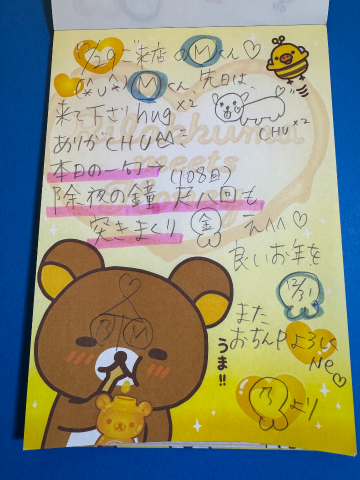 12/29ご来店のMくん♡
(^ε^)Mくん先日は、
来て下さりhug×2
ありがCHU♡ニ
CHU×2
本日の一句→
(108回)
除夜の鐘 尺八回も
突きまくり 金
え^^♡
良いお年を
12/31
また
おちんPよろしく
Ne♡
乃 M
うま!!
乃より